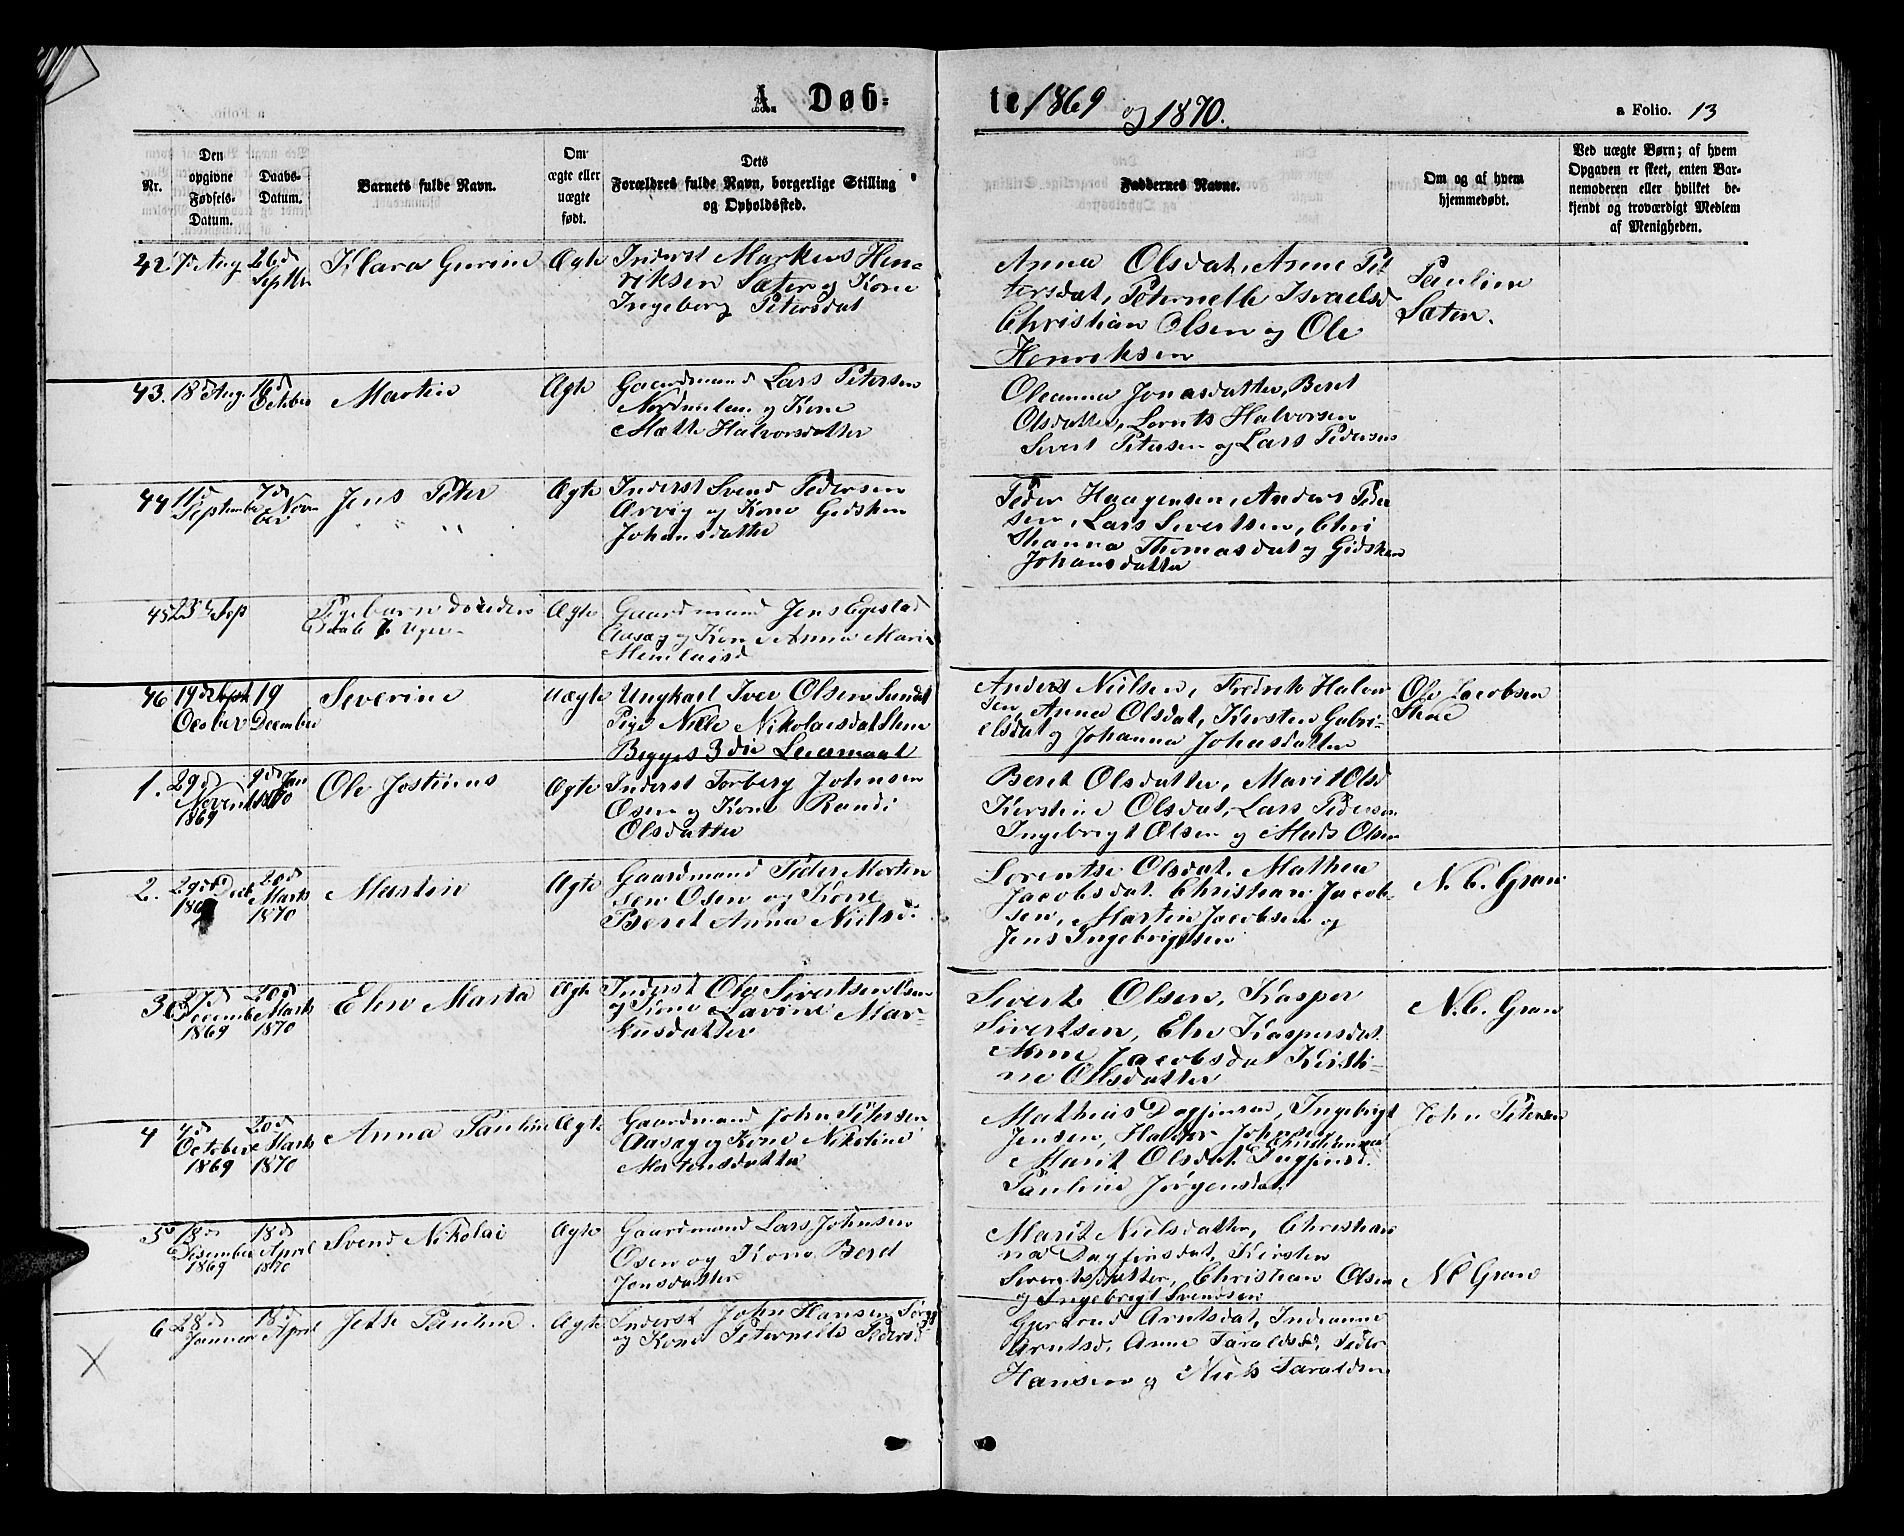 A. Døb-
te 1869 og 1870.
a Folio. 13
Nr.
Den opgivne Fødsels-Datum.
Daabs-Datum.
Barnets fulde Navn.
Om ægte eller uægte født.
Dets Forældres fulde Navn, borgerlige Stilling og Opholdssted.
Faddernes Navne.
Om og af hvem hjemmedøbt.
Ved uægte Børn; af hvem
Opgaven er skeet, enten Bar-
nemoderen eller hvilket be-
kjendt og troværdigt Medlem
af Menigheden.
42. 7d Aug 26d Septbr Klara Gurine Ægte
Inderst Markus Hen-
riksen Sæter og Kone
Ingeberg Petersdat
Anna Olsdat, Anne Pe-
tersdat, Peternelle Israelsd
Christian Olsen og Ole
Henriksen
Pauline
Sæten.
43. 18d Aug. 16d October Martin Ægte
Gaardmand Lars Petersen
Nordmelan og Kone
Mætte Halvorsdatter
Oleanna Jonasdatter, Beret
Olsdatter, Lornts Halvorsen
Sivert Petersen og Lars Pedersen
44 11d September 7d November Jens Peter Ægte
Inderst Svend Pedersen
Arvig og Kone Gidsken
Johansdatter
Peder Haagensen, Anders Peder
sen, Lars Sivertsen, Chri
stianna Thomasdat og Gidsken
Johansdatter
45 23d Sep Pigebarn død uden
Daab 7 Uger Ægte
Gaardmand Jens Egestad
Aasag og Kone Anna Maria
Menilaisd
46 19d Sept October 19 December Severine Uægte
Ungkarl Iver Olsen Sundet
Pige Nele Nikolaisdat Skene
Begges 3die Leiermaal
Anders Nielsen, Fredrik Halvor
sen, Anna Olsdat, Kirsten Gabri-
elsdat og Johanna Johansdatter
Ole Jacobsen
Skene
1. 29d November 1869 9d Jan 1870 Ole Jostinus Ægte
Inderst Torberg Johnsen
Osen og Kone Randi
Olsdatter
Beret Olsdatter, Marit Olsd
Kerstine Olsdat, Lars Pedersen
Ingebrigt Olsen og Mads Olsen
2. 29de Decb 1869 20d Marts 1870 Martin Ægte
Gaardmand Peder Morten
sen Osen og Kone
Beret Anna Nielsd.
Lorentse Olsdat. Mathea
Jacobsdat. Christian Jacob-
sen, Martin Jacobsen og
Jens Ingebrigtsen
N. C. Gran
3 27d December 1869 20d Marts 1870 Elen Marta Ægte
Inderst Ole Sivertsen Osen
og Kone Lavine Mar-
kusdatter
Sivert Olsen, Kasper
Sivertsen, Elen Kaspersdat
Anne Jacobsdat Kirsti-
ne Olsdatter
N. C. Gran
4 4d October 1869 20d Marts 1870 Anna Pauline Ægte
Gaardmand John Petersen
Aasag og Kone Nikoline
Mortensdatter
Mathias Dagfinsen, Ingebrigt
Jensen, Halder Johnsen
Marit Olsdat. Christianna Dagfinsd.
Pauline Jørgensdat
John Petersen
5 18d Desember 1869 18d April 1870 Svend Nikolai Ægte
Gaardmand Lars Johnsen
Osen og Kone Beret
Jonsdatter
Marit Nielsdatter, Christian
na Dagfinsdat, Kirsten
Sivertsdatter, Christian Olsen
og Ingebrigt Svendsen
N C Gran
6 28d Januar 18d April Jette Pauline. Ægte
Inderst John Hansen
og Kone Peternelle Pedersd
Gjertrud Arntsdat, Indianne
Arntsd, Anne Taraldsd, Peder
Hansen og Niels Taraldsen
X